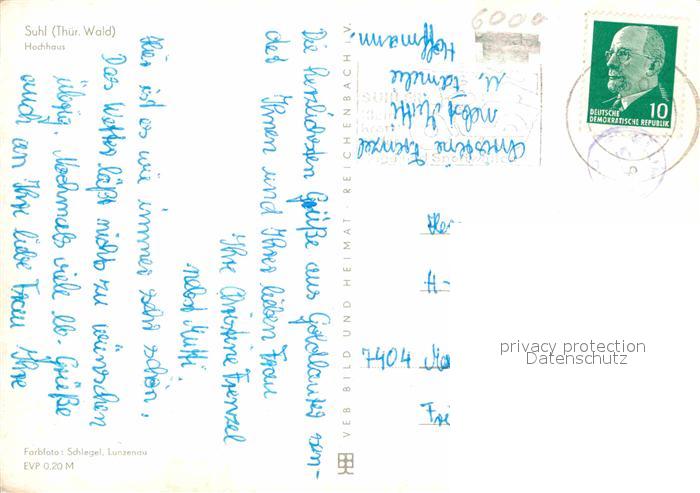 Suhl (Thür. Wald)
Hochhaus
Die herzlichsten Grüße aus Goldlauter sen-
det Ihnen und Ihrer lieben Frau
Ihre Christine Frenzel
nebst Mutti.
Hier ist es wie immer sehr schön.
Das Wetter läßt nichts zu wünschen
übrig. Nochmals viele lb. Grüße
auch an Ihre liebe Frau Ihre
Christine Frenzel
nebst Mutti
u. Familie
Hoffmann.
Farbfoto: Schlegel, Lunzenau
EVP 0,20 M
VEB BILD UND HEIMAT · REICHENBACH i.V.
6000
DEUTSCHE
DEMOKRATISCHE REPUBLIK
10
H-
7404
privacy protection
Datenschutz